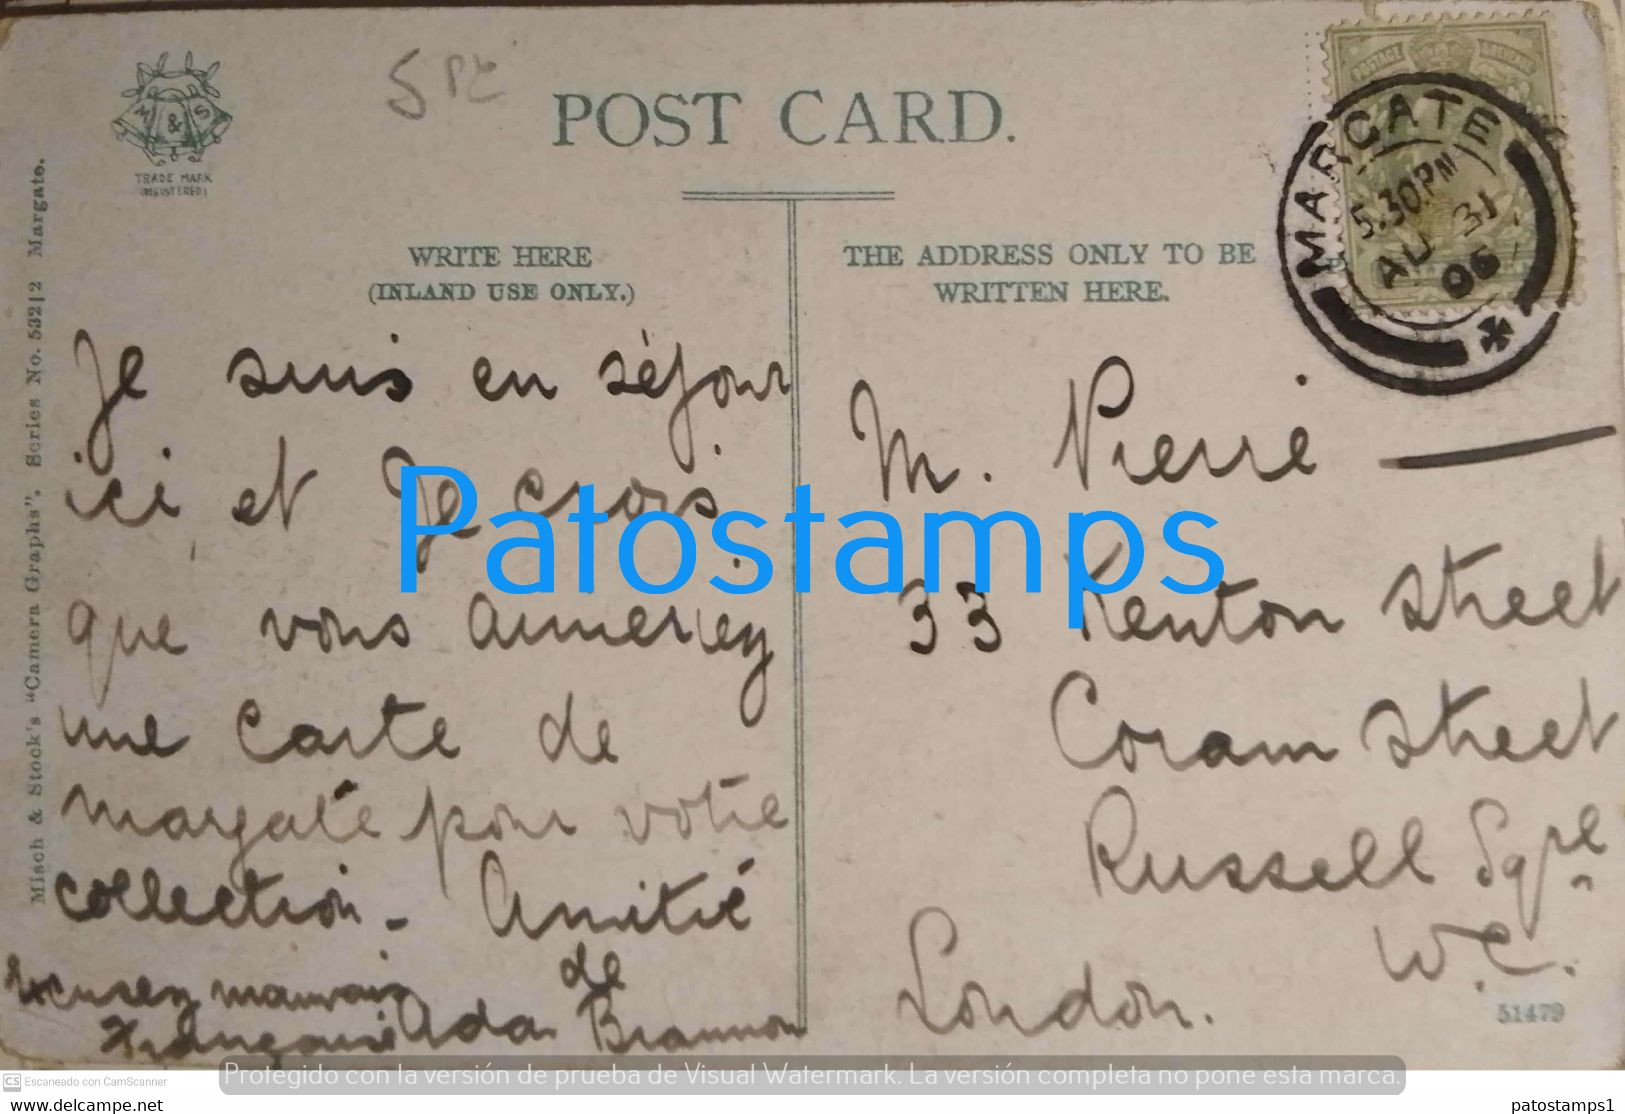 M & S
TRADE MARK
(REGISTERED)
5 Pt
POST CARD.
POSTAGE REVENUE
MARGATE
5.30PM
AU 31
06
Misch & Stock's "Camera Graphs". Series No. 532|2 Margate.
WRITE HERE
(INLAND USE ONLY.)
THE ADDRESS ONLY TO BE
WRITTEN HERE.
Je suis en séjour
ici et Je crois
que vous aimeriez
une carte de
margate pour votre
collection - Amitié
de
Excusez mauvais
Française Ada Brannon
M. Pierre
33 Kenton street
Coram street
Russell Sqre
W.C.
London.
51479
Patostamps
CS Escaneado con CamScanner
Protegido con la versión de prueba de Visual Watermark. La versión completa no pone esta marca.
www.delcampe.net
patostamps1